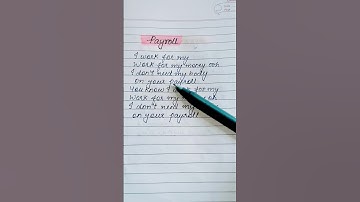 Payroll
I work for my
Work for my money ooh
I don't need my body
on your payroll
You know I work for my
Work for my ooh
I don't need my
on your payroll